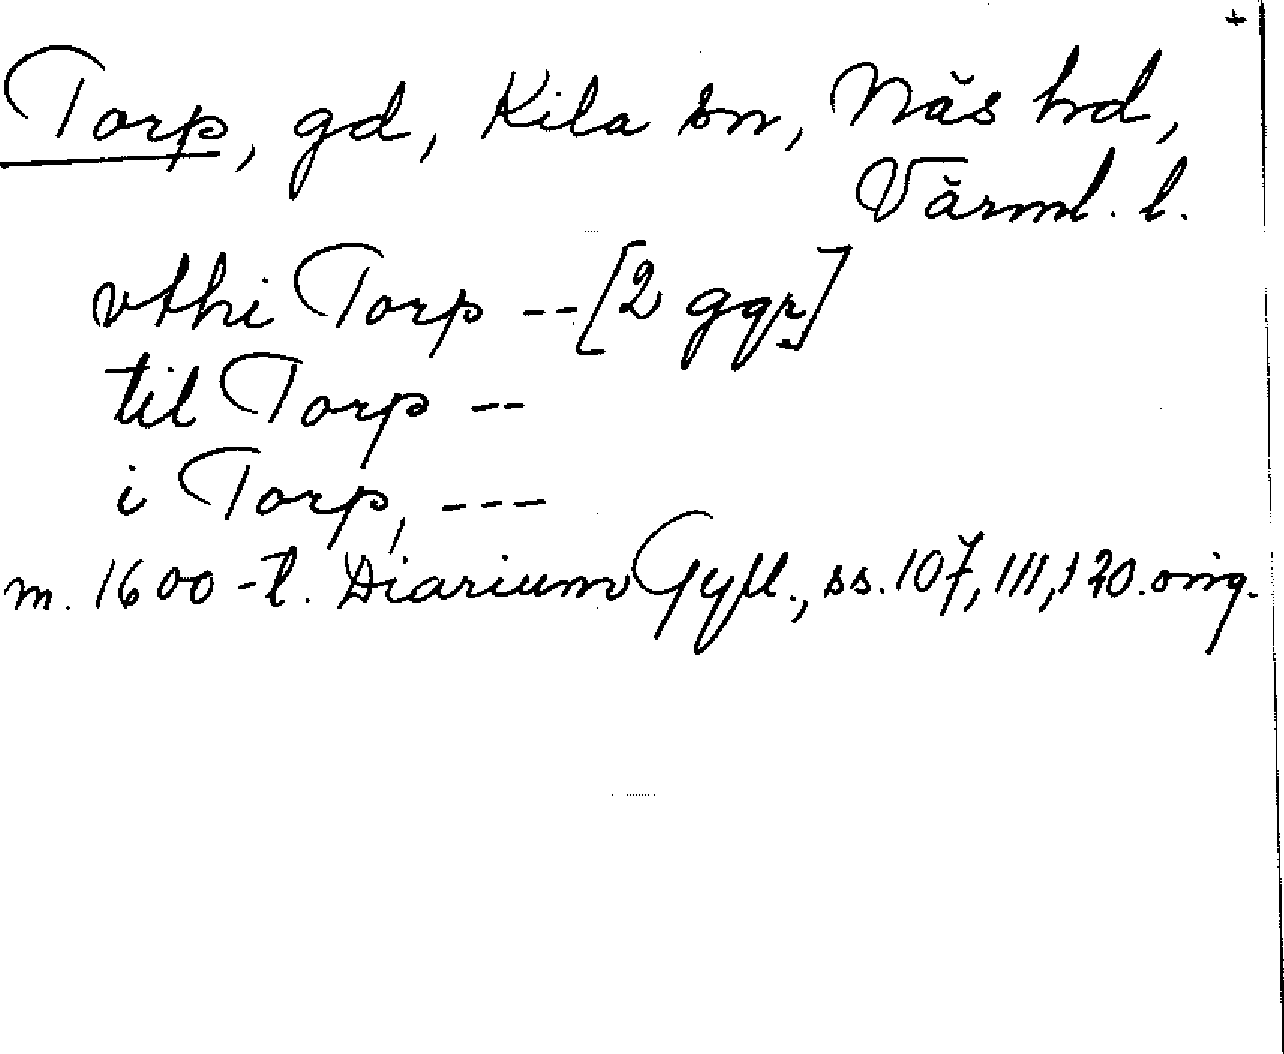 +
Torp, gd, Kila sn, Näs hd,
Värml. l.
vthi Torp -- [2 ggr]
til Torp --
i Torp, ---
m. 1600-t. Diarium Gyll., ss. 107, 111, 120. orig.